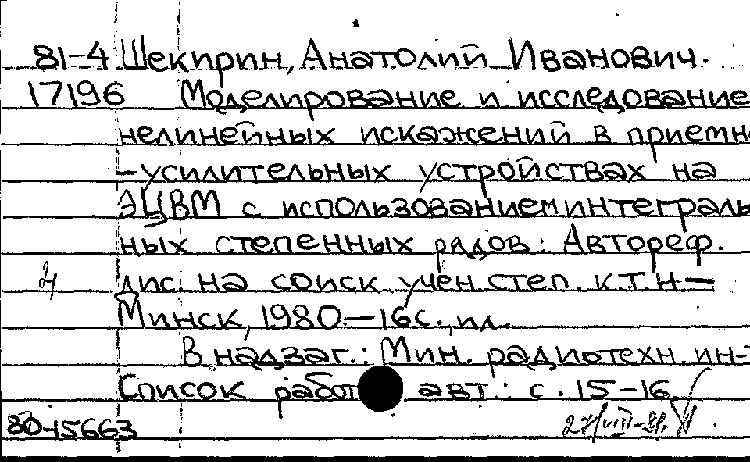 81-4 Шекирин, Анатолий Иванович.
17196 Моделирование и исследование
нелинейных искажений в приемн
-усилительных устройствах на
ЭЦВМ с использованием интеграль
ных степенных рядов: Автореф.
дис. на соиск учен. степ. к.т.н—
Минск, 1980.—16с., ил.
В надзаг.: Мин. радиотехн. ин-т
Список работ авт.: с. 15-16.
80-15663